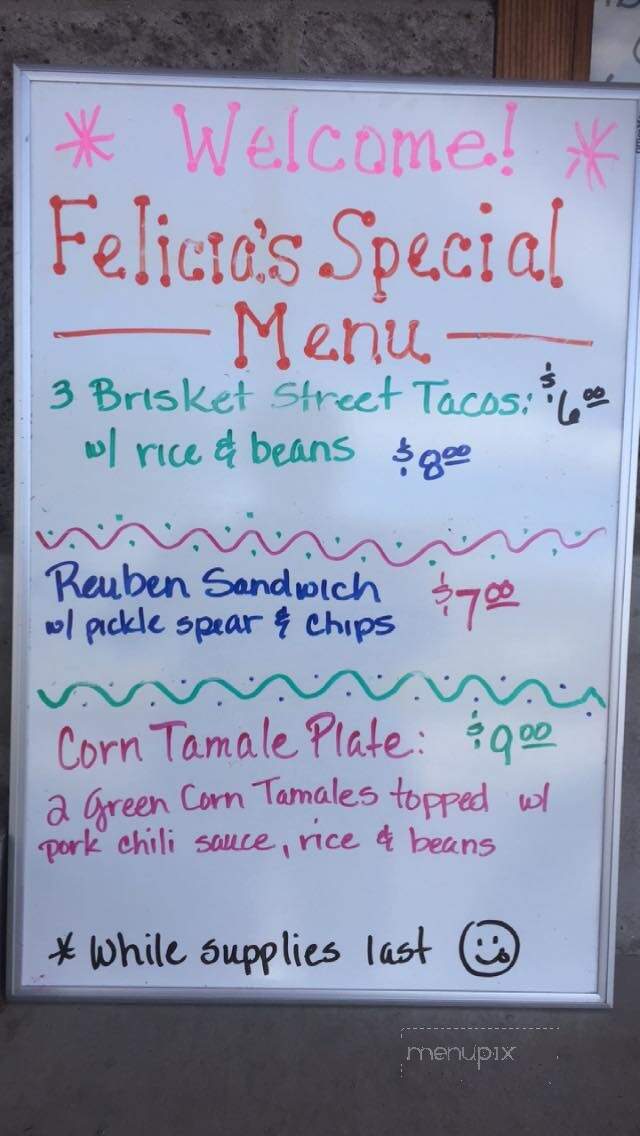 * Welcome! *
Felicia's Special
Menu
3 Brisket Street Tacos: $6.00
w/ rice & beans $8.00
Reuben Sandwich $7.00
w/ pickle spear & chips
Corn Tamale Plate: $9.00
2 Green Corn Tamales topped w/
pork chili sauce, rice & beans
* While supplies last
menupix